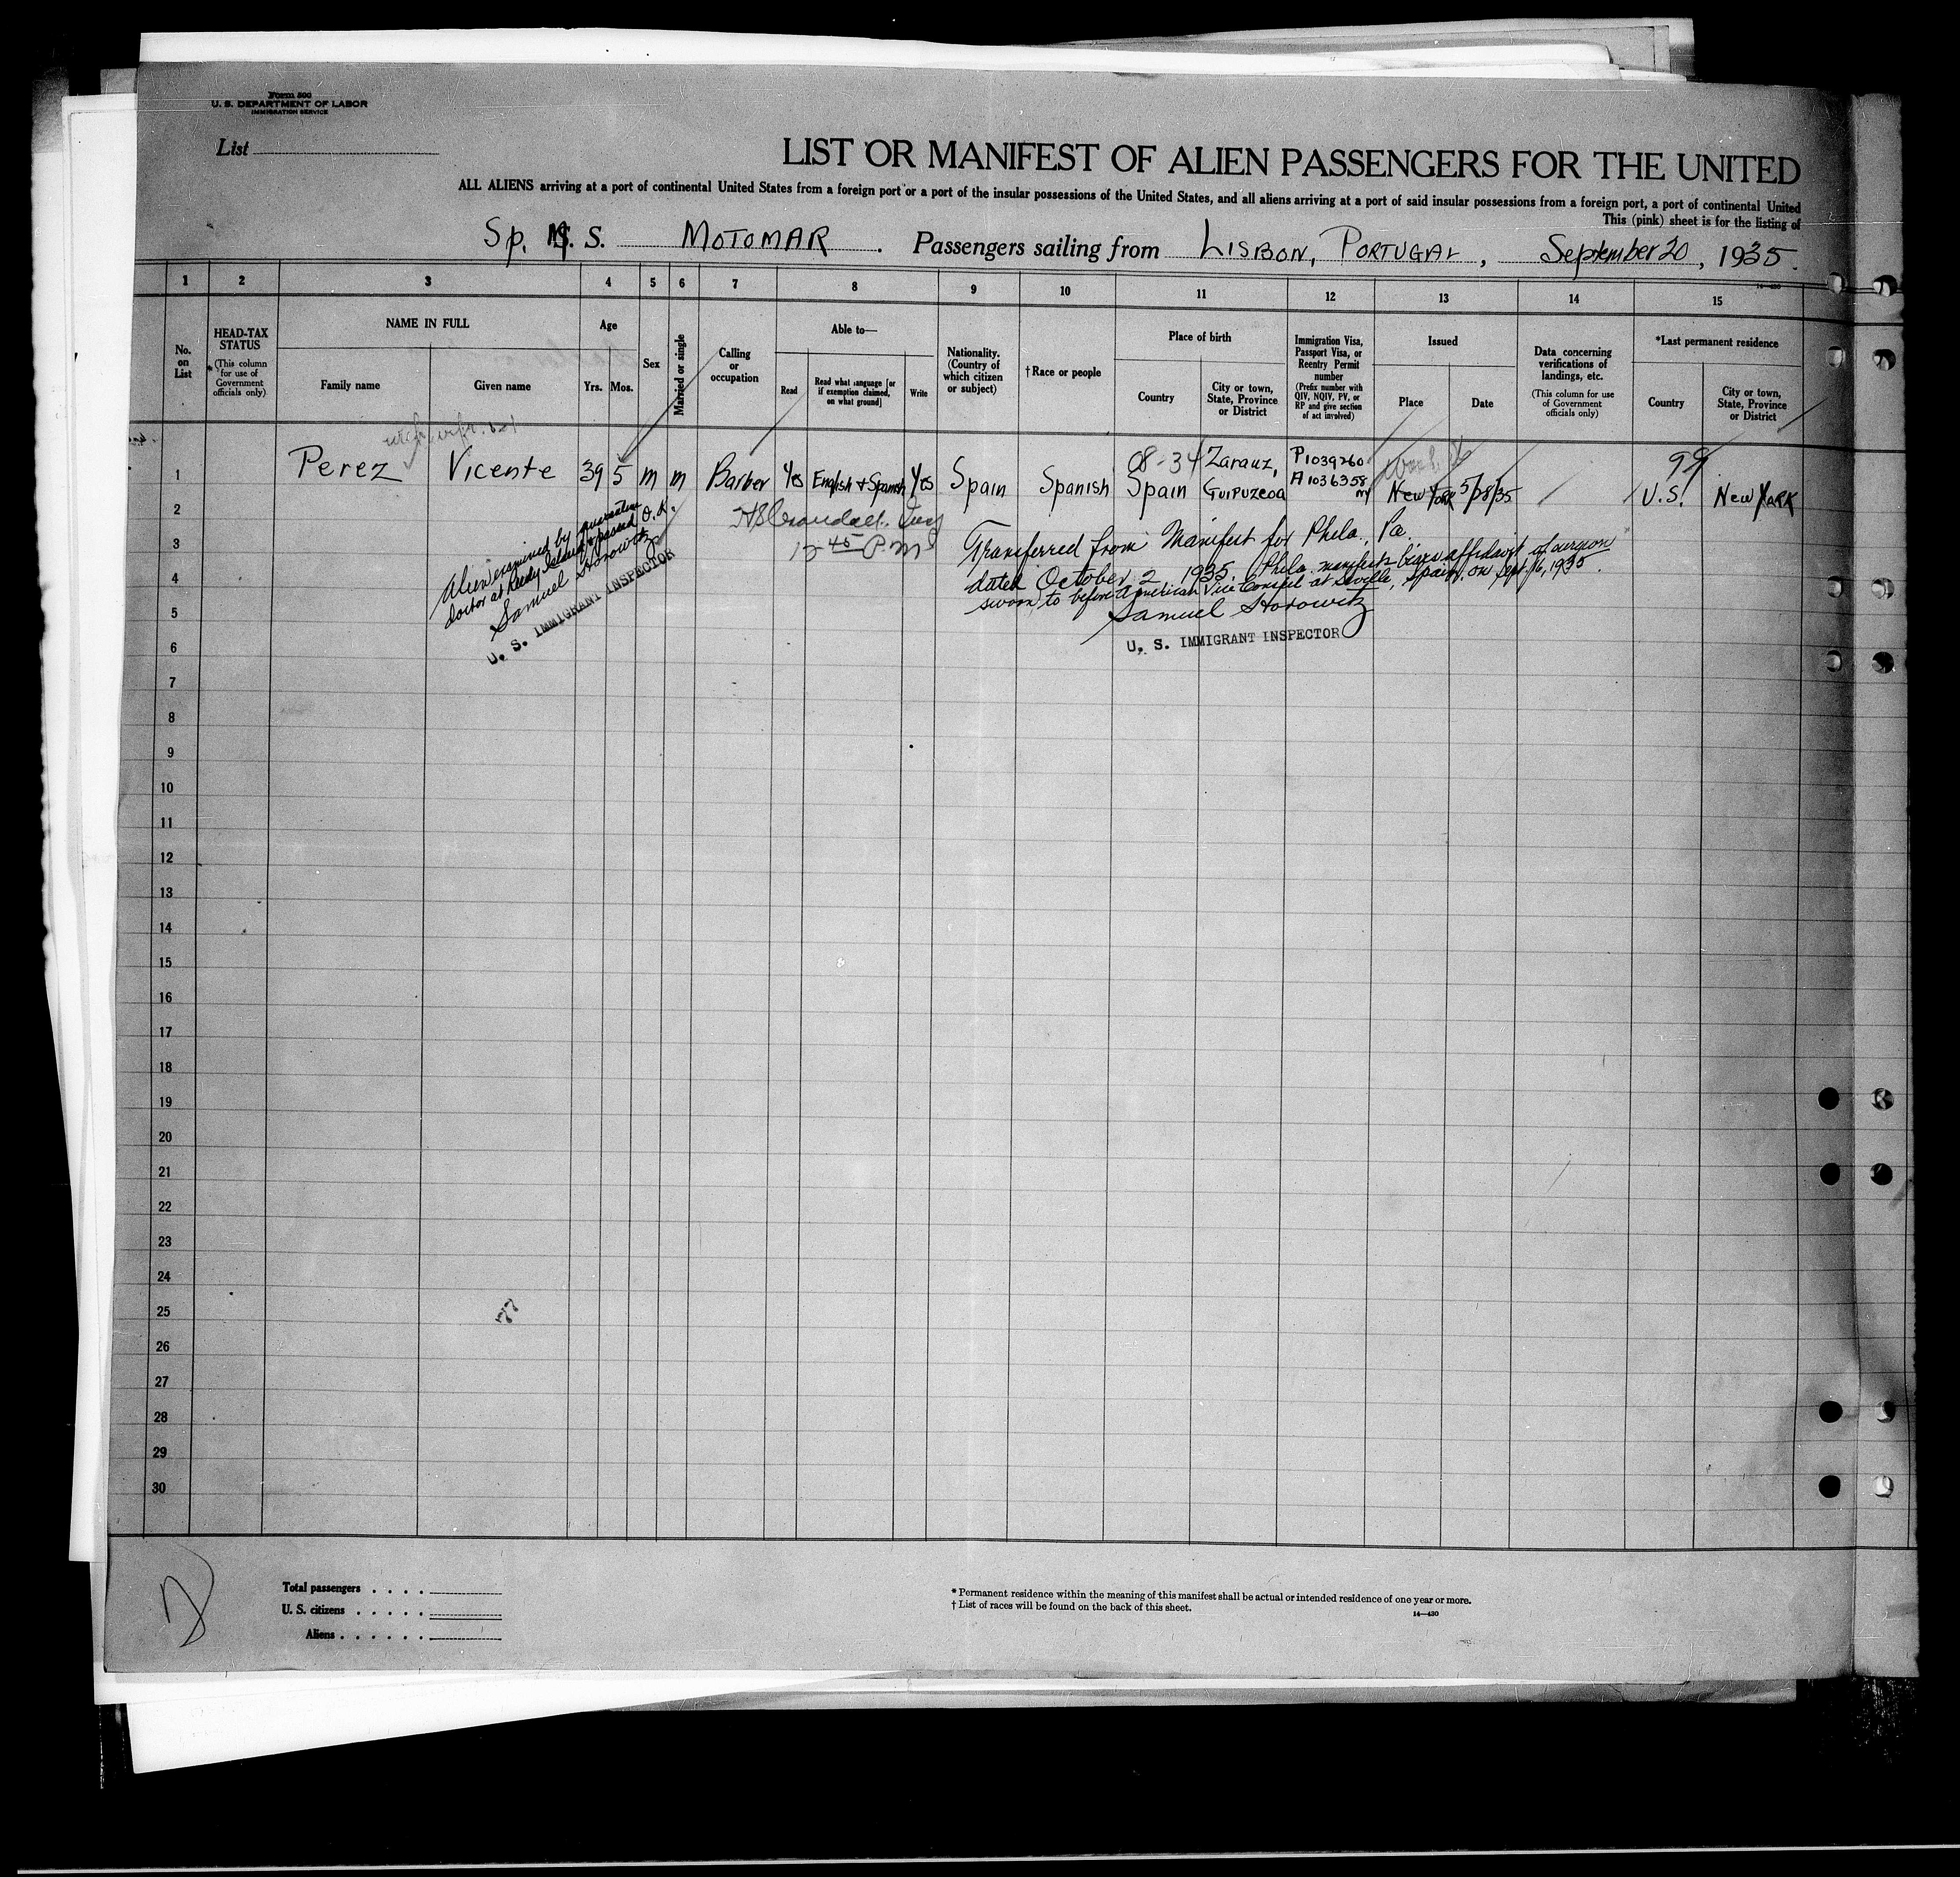 Form 500
U. S. DEPARTMENT OF LABOR
IMMIGRATION SERVICE
List
LIST OR MANIFEST OF ALIEN PASSENGERS FOR THE UNITED
ALL ALIENS arriving at a port of continental United States from a foreign port or a port of the insular possessions of the United States, and all aliens arriving at a port of said insular possessions from a foreign port, a port of continental United
This (pink) sheet is for the listing of
Sp. M. S. MOTOMAR. Passengers sailing from LISBON, PORTUGAL, September 20, 1935.
1 2 3 4 5 6 7 8 9 10 11 12 13 14 15
No. on List
HEAD-TAX STATUS
(This column for use of Government officials only)
NAME IN FULL
Family name
Given name
Age
Yrs. Mos.
Sex
Married or single
Calling or occupation
Able to—
Read
Read what language [or if exemption claimed, on what ground]
Write
Nationality. (Country of which citizen or subject)
†Race or people
Place of birth
Country
City or town, State, Province or District
Immigration Visa, Passport Visa, or Reentry Permit number
(Prefix number with QIV, NQIV, PV, or RP and give section of act involved)
Issued
Place
Date
Data concerning verifications of landings, etc.
(This column for use of Government officials only)
*Last permanent residence
Country
City or town, State, Province or District
08-34 Zarauz, P1039260 99
1 Perez Vicente 39 5 m m Barber Yes English + Spanish Yes Spain Spanish Spain Guipuzcoa A1036358 New York 5/28/35 U.S. New York
Alien examined by quarantine
doctor at Reedy Island & passed O.K.
Samuel Horowitz
U. S. IMMIGRANT INSPECTOR
12 45 P M
Transferred from Manifest for Phila., Pa.
dated October 2 1935. Phila. manifest bears affidavit of surgeon
sworn to before American Vice Consul at Seville, Spain, on Sept. 16, 1935.
Samuel Horowitz
U. S. IMMIGRANT INSPECTOR
2
3
4
5
6
7
8
9
10
11
12
13
14
15
16
17
18
19
20
21
22
23
24
25
77
26
27
28
29
30
Total passengers
U. S. citizens
Aliens
* Permanent residence within the meaning of this manifest shall be actual or intended residence of one year or more.
† List of races will be found on the back of this sheet.
14—430